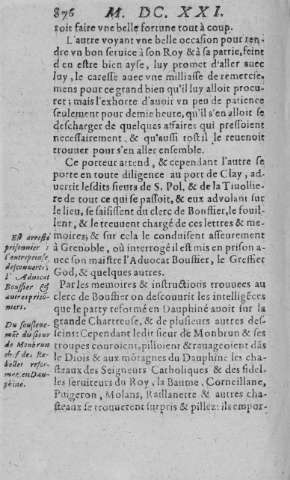 876 M. DC. XXI.
roit faire vne belle fortune tout à coup.
L'autre voyant vne belle occasion pour ren-
dre vn bon seruice à son Roy & à sa patrie, feint
d'en estre bien ayse, luy promet d'aller auec
luy, le caresse auec vne milliasse de remercie-
mens pour ce grand bien qu'il luy alloit procu-
rer; mais l'exhorte d'auoir vn peu de patience
seulement pour demie heure, qu'il s'en alloit se
descharger de quelques affaires qui pressoient
necessairement, & qu'aussi tost il le reuenoit
trouuer pour s'en aller ensemble.
Ce porteur attend, & cependant l'autre se
porte en toute diligence au port de Clay, ad-
uertit lesdits sieurs de S. Pol, & de la Tiuollie-
re de tout ce qui se passoit, & eux aduolant sur
le lieu, se saisissent du clerc de Bouffier, le fouil-
lent, & le treuuent chargé de ces lettres & me-
moires, & sur cela le conduisent asseurement
à Grenoble, où interrogé il est mis en prison a-
uec son maistre l'Aduocat Bouffier, le Greffier
God, & quelques autres.
Est arresté
prisonnier
l'entreprise
descouuerte,
l'Aduocat
Bouffier &
autres priso-
niers.
Par les memoires & instructions trouuees au
clerc de Bouffier on descouurit les intelligéces
que le party reformé en Dauphiné auoit sur la
grande Chartreuse, & de plusieurs autres des-
seins: Cependant ledit sieur de Monbrun & ses
troupes couroient, pilloient & rauageoient dás
le Diois & aux môtagnes du Dauphiné les cha-
steaux des Seigneurs Catholiques & des fidel-
les seruiteurs du Roy, la Baume, Corneillane,
Puigeron, Molans, Raillanette & autres cha-
steaux se trouuerent surpris & pillez: ils empor-
Du sousleue-
mét du sieur
de Monbrun
chef des Re-
belles refor-
mez en Dau-
phiné.